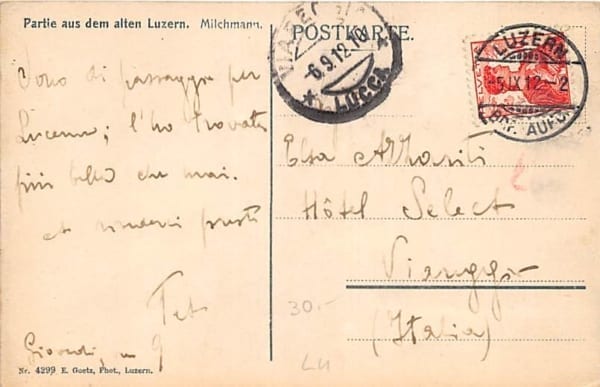 Partie aus dem alten Luzern. Milchmann.
POSTKARTE.
VIAREGGIO
-6.9.12.10
LUCCA
LUZERN
IX.12
BRF. AUFG.
Sono di passaggio per
Lucerna; l'ho trovata
più bella che mai.
presto
Giovedì,
Elsa
Hôtel Select
Viareggio
(Italia)
30.-
LU
Nr. 4299 E. Goetz, Phot., Luzern.